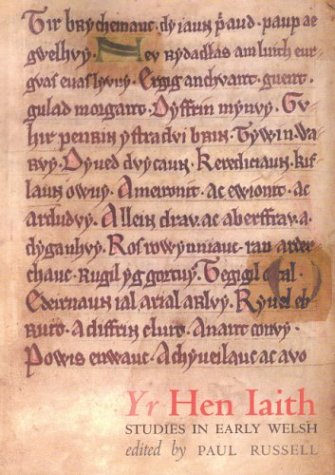 Tir brychemauc · dy iaun p̄aud · paup ae
gwelhvy · Ney rydadlas am luith eur
gvas euas · Ergig anchvant · guent ·
gulad morgant · Dyffrin mynvy · Gv
hir penrin ystradvi brin · Tywin wa
rvy · Dyued dyvcaun · Kerediciaun · kif
laun owny · Ameironit · ac ewionit · ac
ardudvy · Allein drav · ac aberffrav · a
dyganhvy · Ros rowynniauc · ran arder
chauc · Rugil yg gortuy · Tegigil a tal ·
Edeirnaun ial arial arlvy · Ryuel eb
ruto · A diffrin cluto · A nant convy ·
Powis enwauc · A chyueilauc ac avo
Yr Hen Iaith
STUDIES IN EARLY WELSH
edited by PAUL RUSSELL